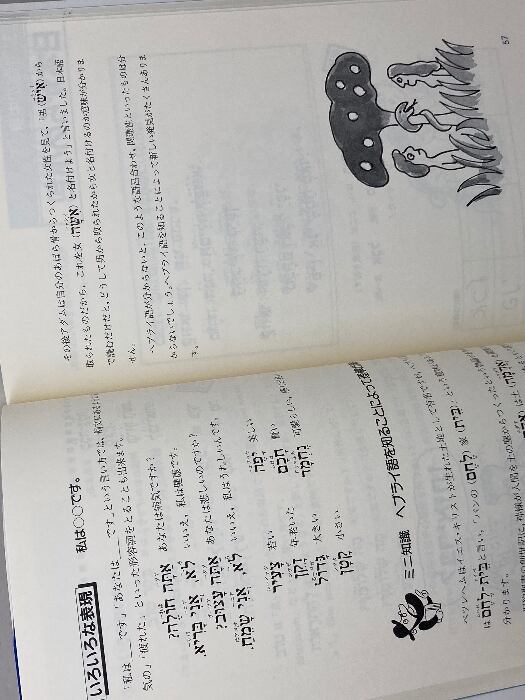 いろいろな表現　私は○○です。
「私は＿＿です」「あなたは＿＿です」という言い方では、
気の」「疲れた」といった形容詞をとることも出来ます。
אַתָּה חוֹלֶה? あなたは病気ですか？
לֹא, אֲנִי בָּרִיא. いいえ、私は健康です。
אַתָּה עָצוּב? あなたは悲しいのですか？
לֹא, אֲנִי שָׂמֵחַ. いいえ、私はうれしいんです。
צָעִיר 若い יָפֶה 美しい
זָקֵן 年老いた חָכָם 賢い
גָּדוֹל 大きい נֶחְמָד 可愛らしい、
קָטָן 小さい
ミニ知識　ヘブライ語を知ることによって
ベツレヘムはイエス・キリストが生まれた土地として有名です
は בֵּית-לֶחֶם と言い、「パンの (לֶחֶם) 家 (בַּיִת)」という
分かります。
神様が人間を土の塵からつくったと
その後アダムは自分のあばら骨からつくられた女性を見て、「男 (אִישׁ) から
取られたものだから、これを女 (אִשָּׁה) と名付けよう」と言いました。日本語
で読むだけだと、どうして男から取られたから女と名付けるのか意味が分かりま
せん。
ヘブライ語が分からないと、このような語呂合わせ、関連性といったものは分
からないでしょう。ヘブライ語を知ることによって新しい発見がたくさんありま
す。
57